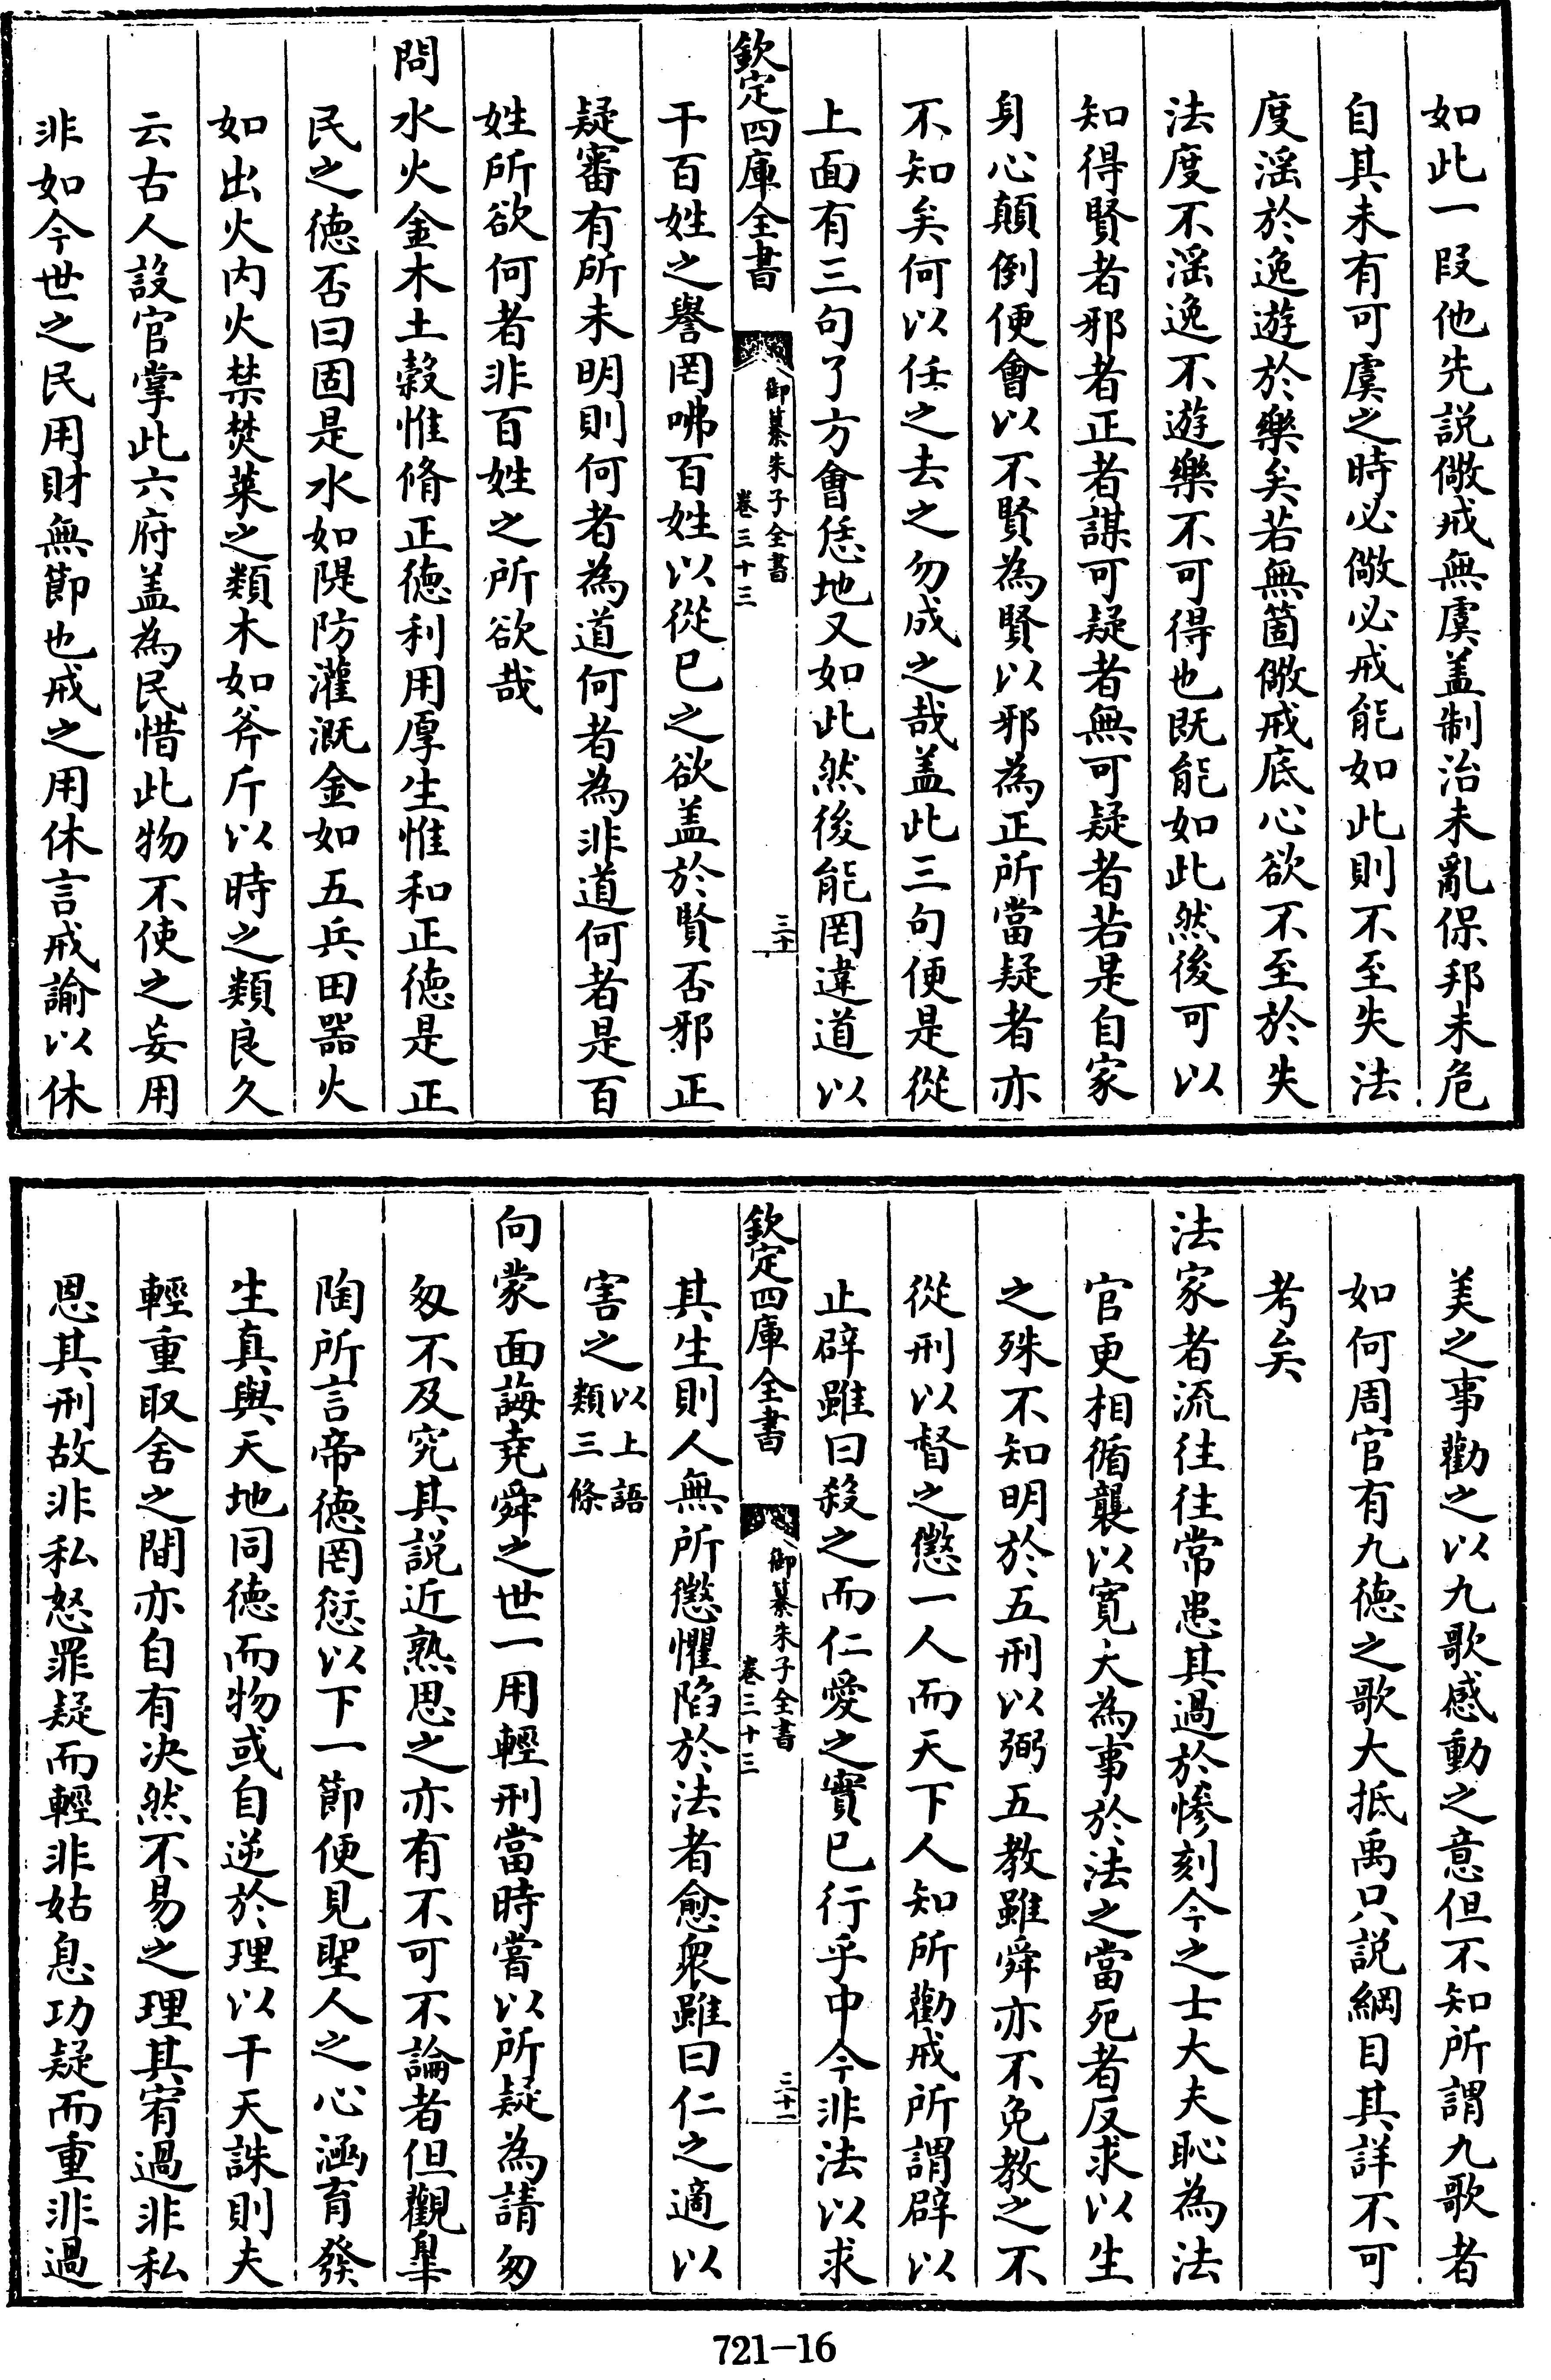 如此一段他先説儆戒無虞盖制治未亂保邦未危
自其未有可虞之時必儆必戒能如此則不至失法
度滛於逸遊於樂矣若無箇儆戒底心欲不至於失
法度不滛逸不遊樂不可得也既能如此然後可以
知得賢者邪者正者謀可疑者無可疑者若是自家
身心顛倒便會以不賢為賢以邪為正所當疑者亦
不知矣何以任之去之勿成之哉盖此三句便是從
上面有三句了方會恁地又如此然後能罔違道以
欽定四庫全書
御纂朱子全書
卷三十三
三十
干百姓之譽罔咈百姓以從已之欲盖於賢否邪正
疑審有所未明則何者為道何者為非道何者是百
姓所欲何者非百姓之所欲哉
問水火金木土穀惟脩正徳利用厚生惟和正徳是正
民之徳否曰固是水如隄防灌溉金如五兵田器火
如出火内火禁焚萊之類木如斧斤以時之類良久
云古人設官掌此六府盖為民惜此物不使之妄用
非如今世之民用財無節也戒之用休言戒諭以休
美之事勸之以九歌感動之意但不知所謂九歌者
如何周官有九徳之歌大抵禹只説綱目其詳不可
考矣
法家者流往往常患其過於惨刻今之士大夫恥為法
官更相循襲以寛大為事於法之當死者反求以生
之殊不知明於五刑以弼五教雖舜亦不免教之不
從刑以督之懲一人而天下人知所勸戒所謂辟以
止辟雖曰殺之而仁愛之實已行乎中今非法以求
欽定四庫全書
御纂朱子全書
卷三十三
三十一
其生則人無所懲懼陷於法者愈衆雖曰仁之適以
害之以上語類三條
向蒙面誨堯舜之世一用輕刑當時嘗以所疑為請匆
匆不及究其説近熟思之亦有不可不論者但觀臯
陶所言帝徳罔愆以下一節便見聖人之心涵育發
生真與天地同徳而物或自逆於理以干天誅則夫
輕重取舍之間亦自有决然不易之理其宥過非私
恩其刑故非私怒罪疑而輕非姑息功疑而重非過
721-16